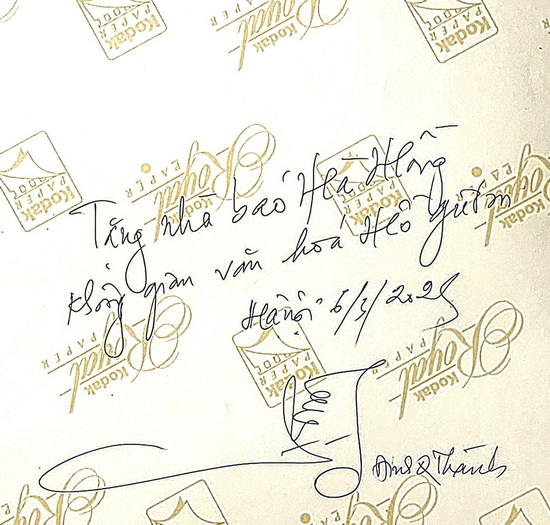 Tặng nhà báo Hà Hồng
không gian văn hoá Hồ Gươm
Hà Nội 6/3/2025
Thành
Kodak
PAPER
Royal
PAPER
Kodak